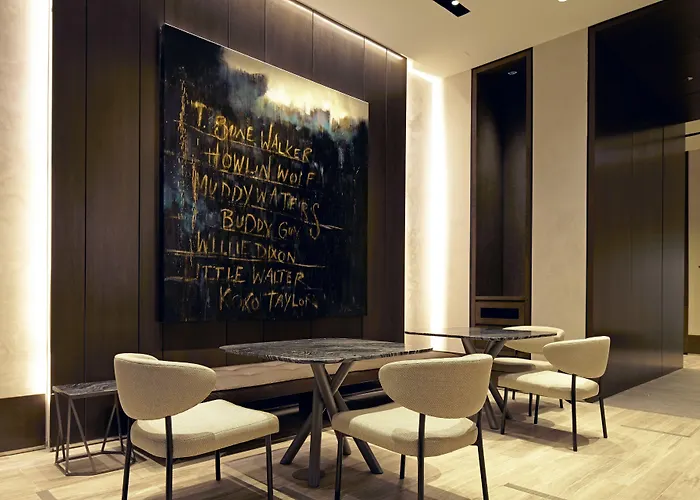 T BONE WALKER
HOWLIN WOLF
MUDDY WATERS
BUDDY GUY
WILLIE DIXON
LITTLE WALTER
KOKO TAYLOR